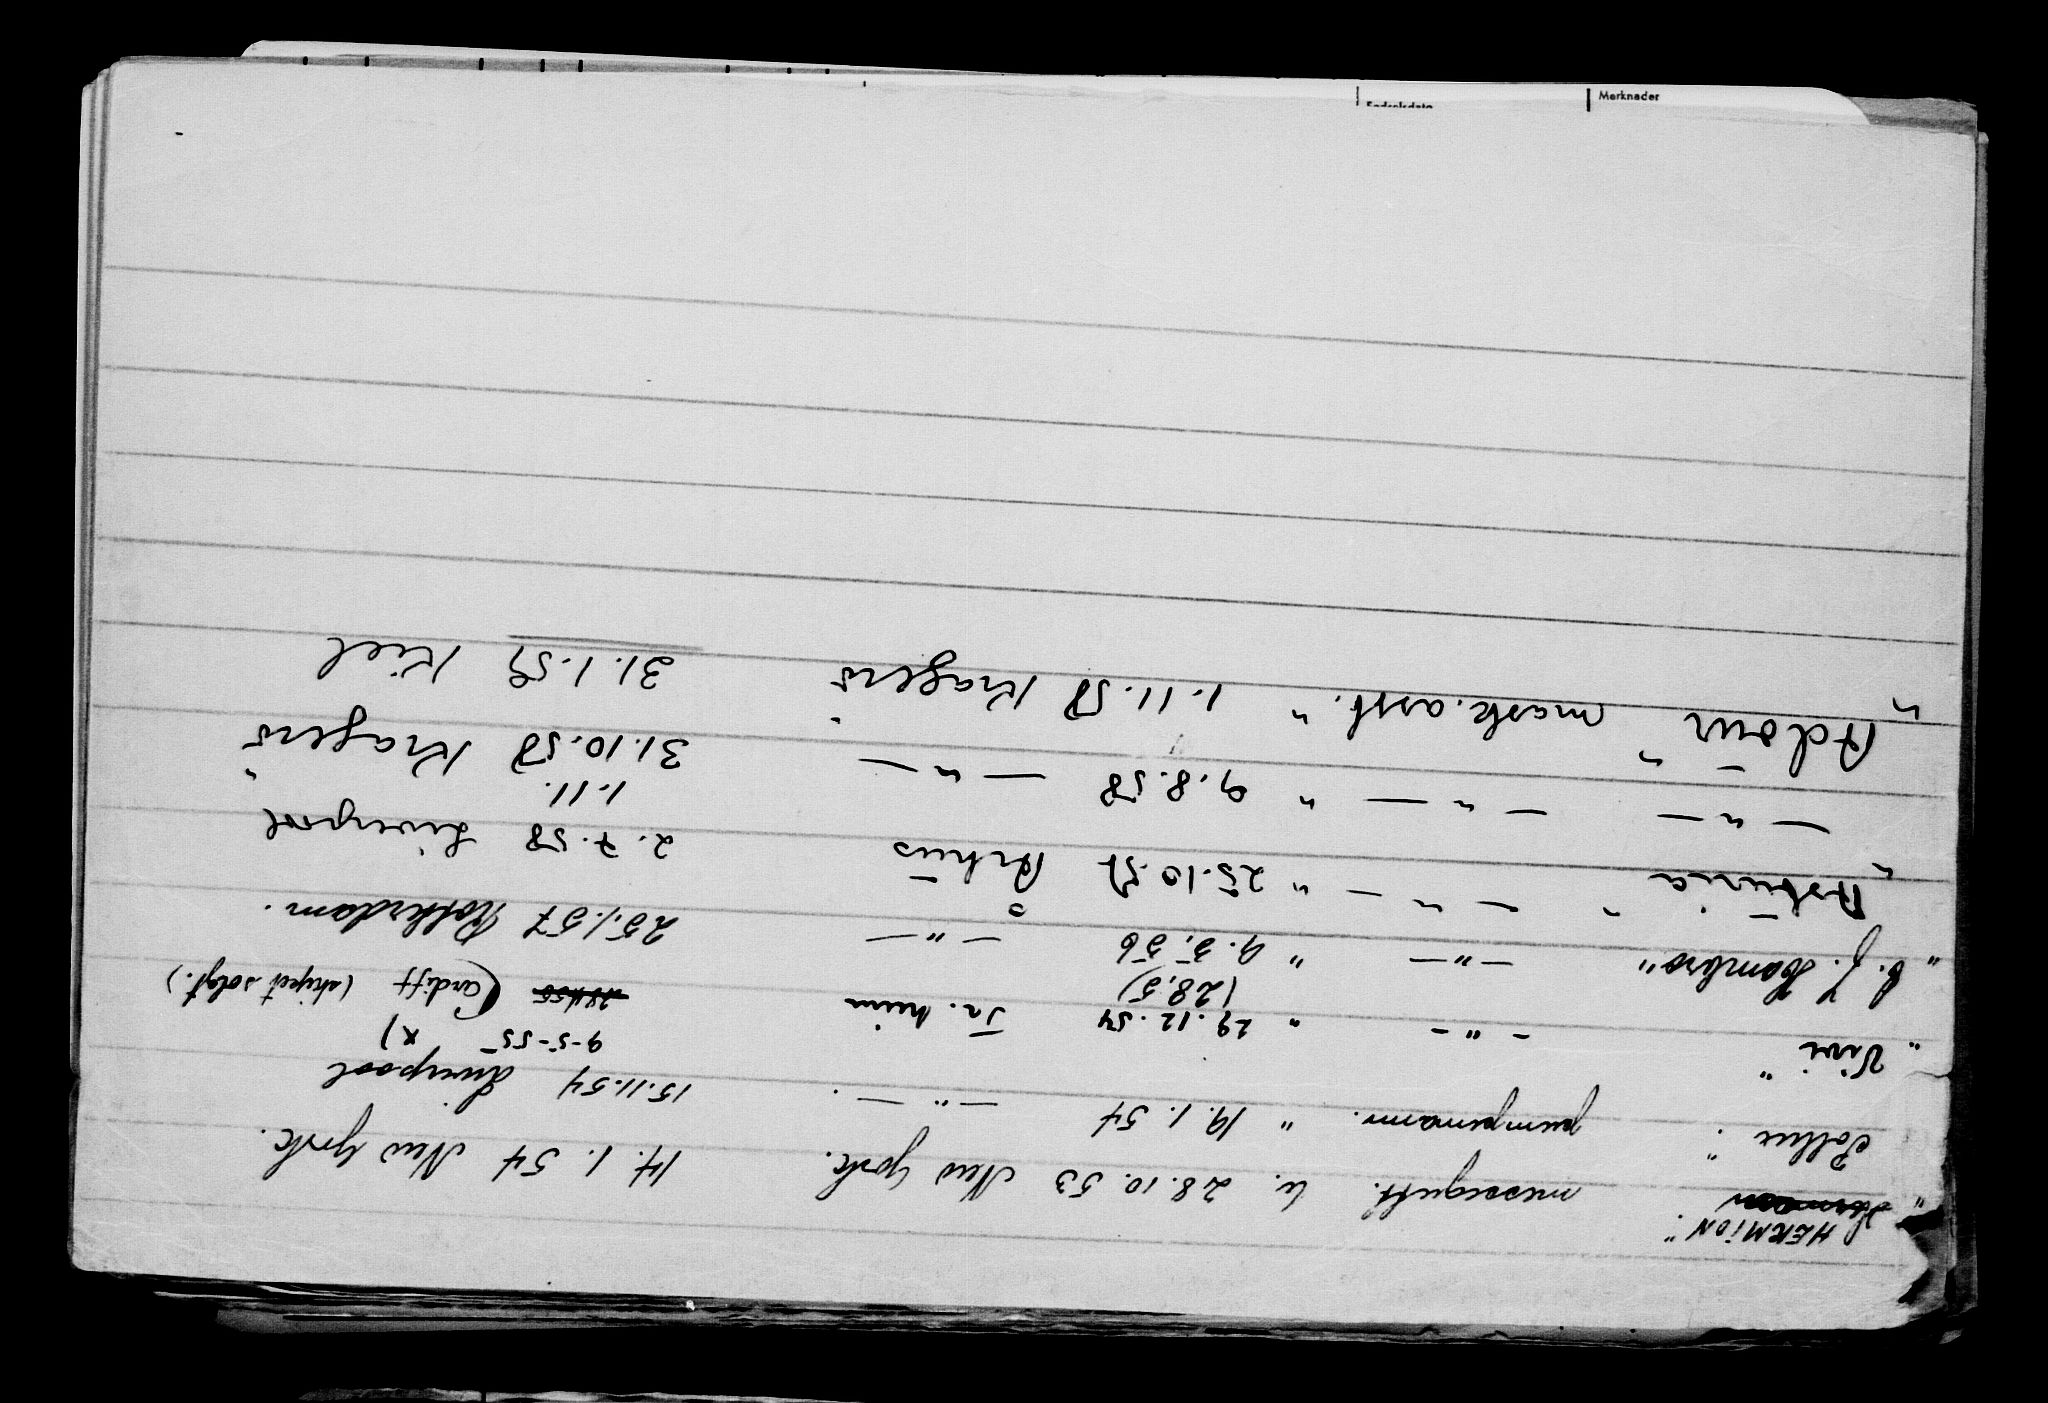 HERMION"
" messegutt. u. 28.10.53 New York. 14.1.54 New York.
Pollux" pumpemann. " 19.1.54 —"— 15.11.54 Liverpool
9-5-55 x)
"Vivi" -"- " 29.12.54 Tr.heim Cardiff (skipet solgt.)
(28,5)
"C. J. Hambro" —"— " 9.3.56 —"— 25.1.57 Rotterdam.
"Astúria" —"— " 25.10.57 Århus 2.7.58 Liverpool
1.11.
—"— —"— " 9.8.58 —"— 31.10.58 Kragerø
"Adour" mask.asst. " 1.11.58 Kragerø 31.1.59 Kiel
Fødselsdato Merknader